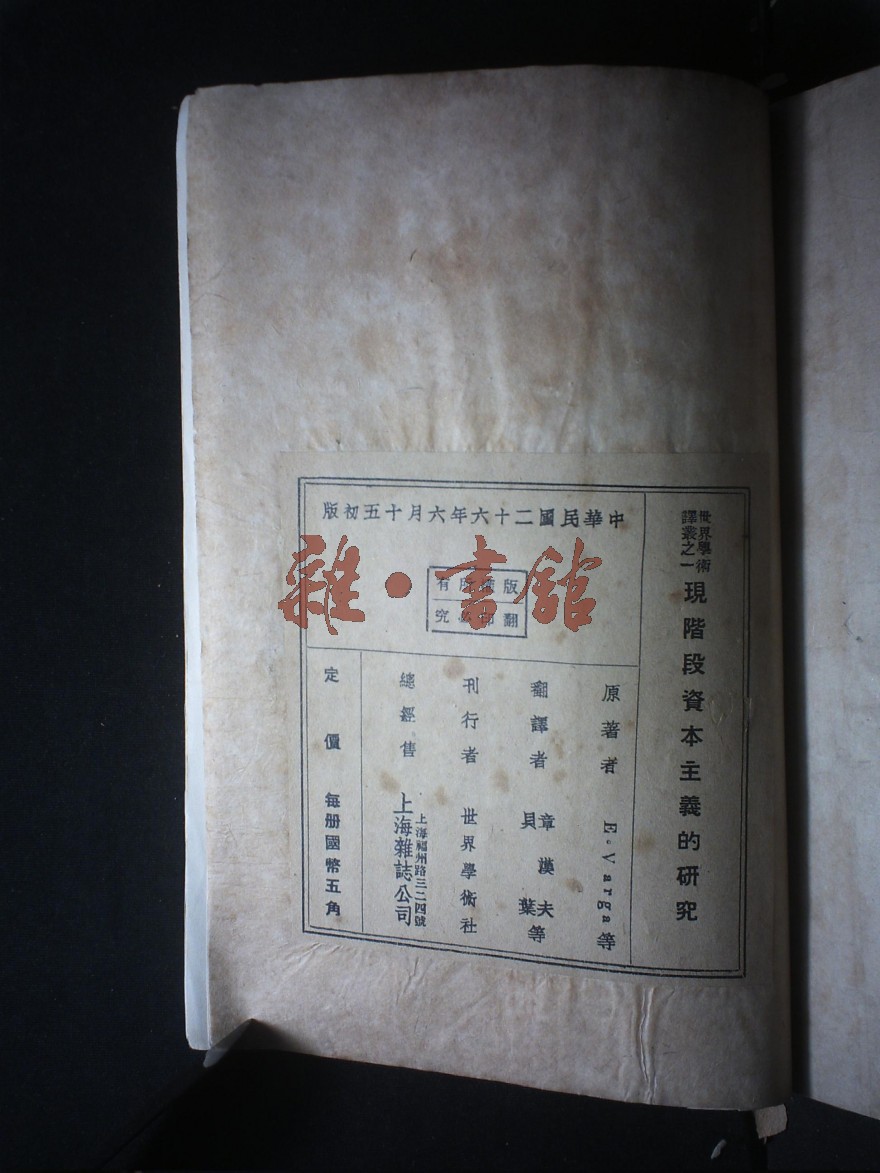 世界學術
譯叢之一
現階段資本主義的研究
中華民國二十六年六月十五初版
版權所有
翻印必究
原著者 E. Varga等
翻譯者 章漢夫 貝葉等
刊行者 世界學術社
總經售 上海福州路三二四號 上海雜誌公司
定價 每册國幣五角
雜·書館